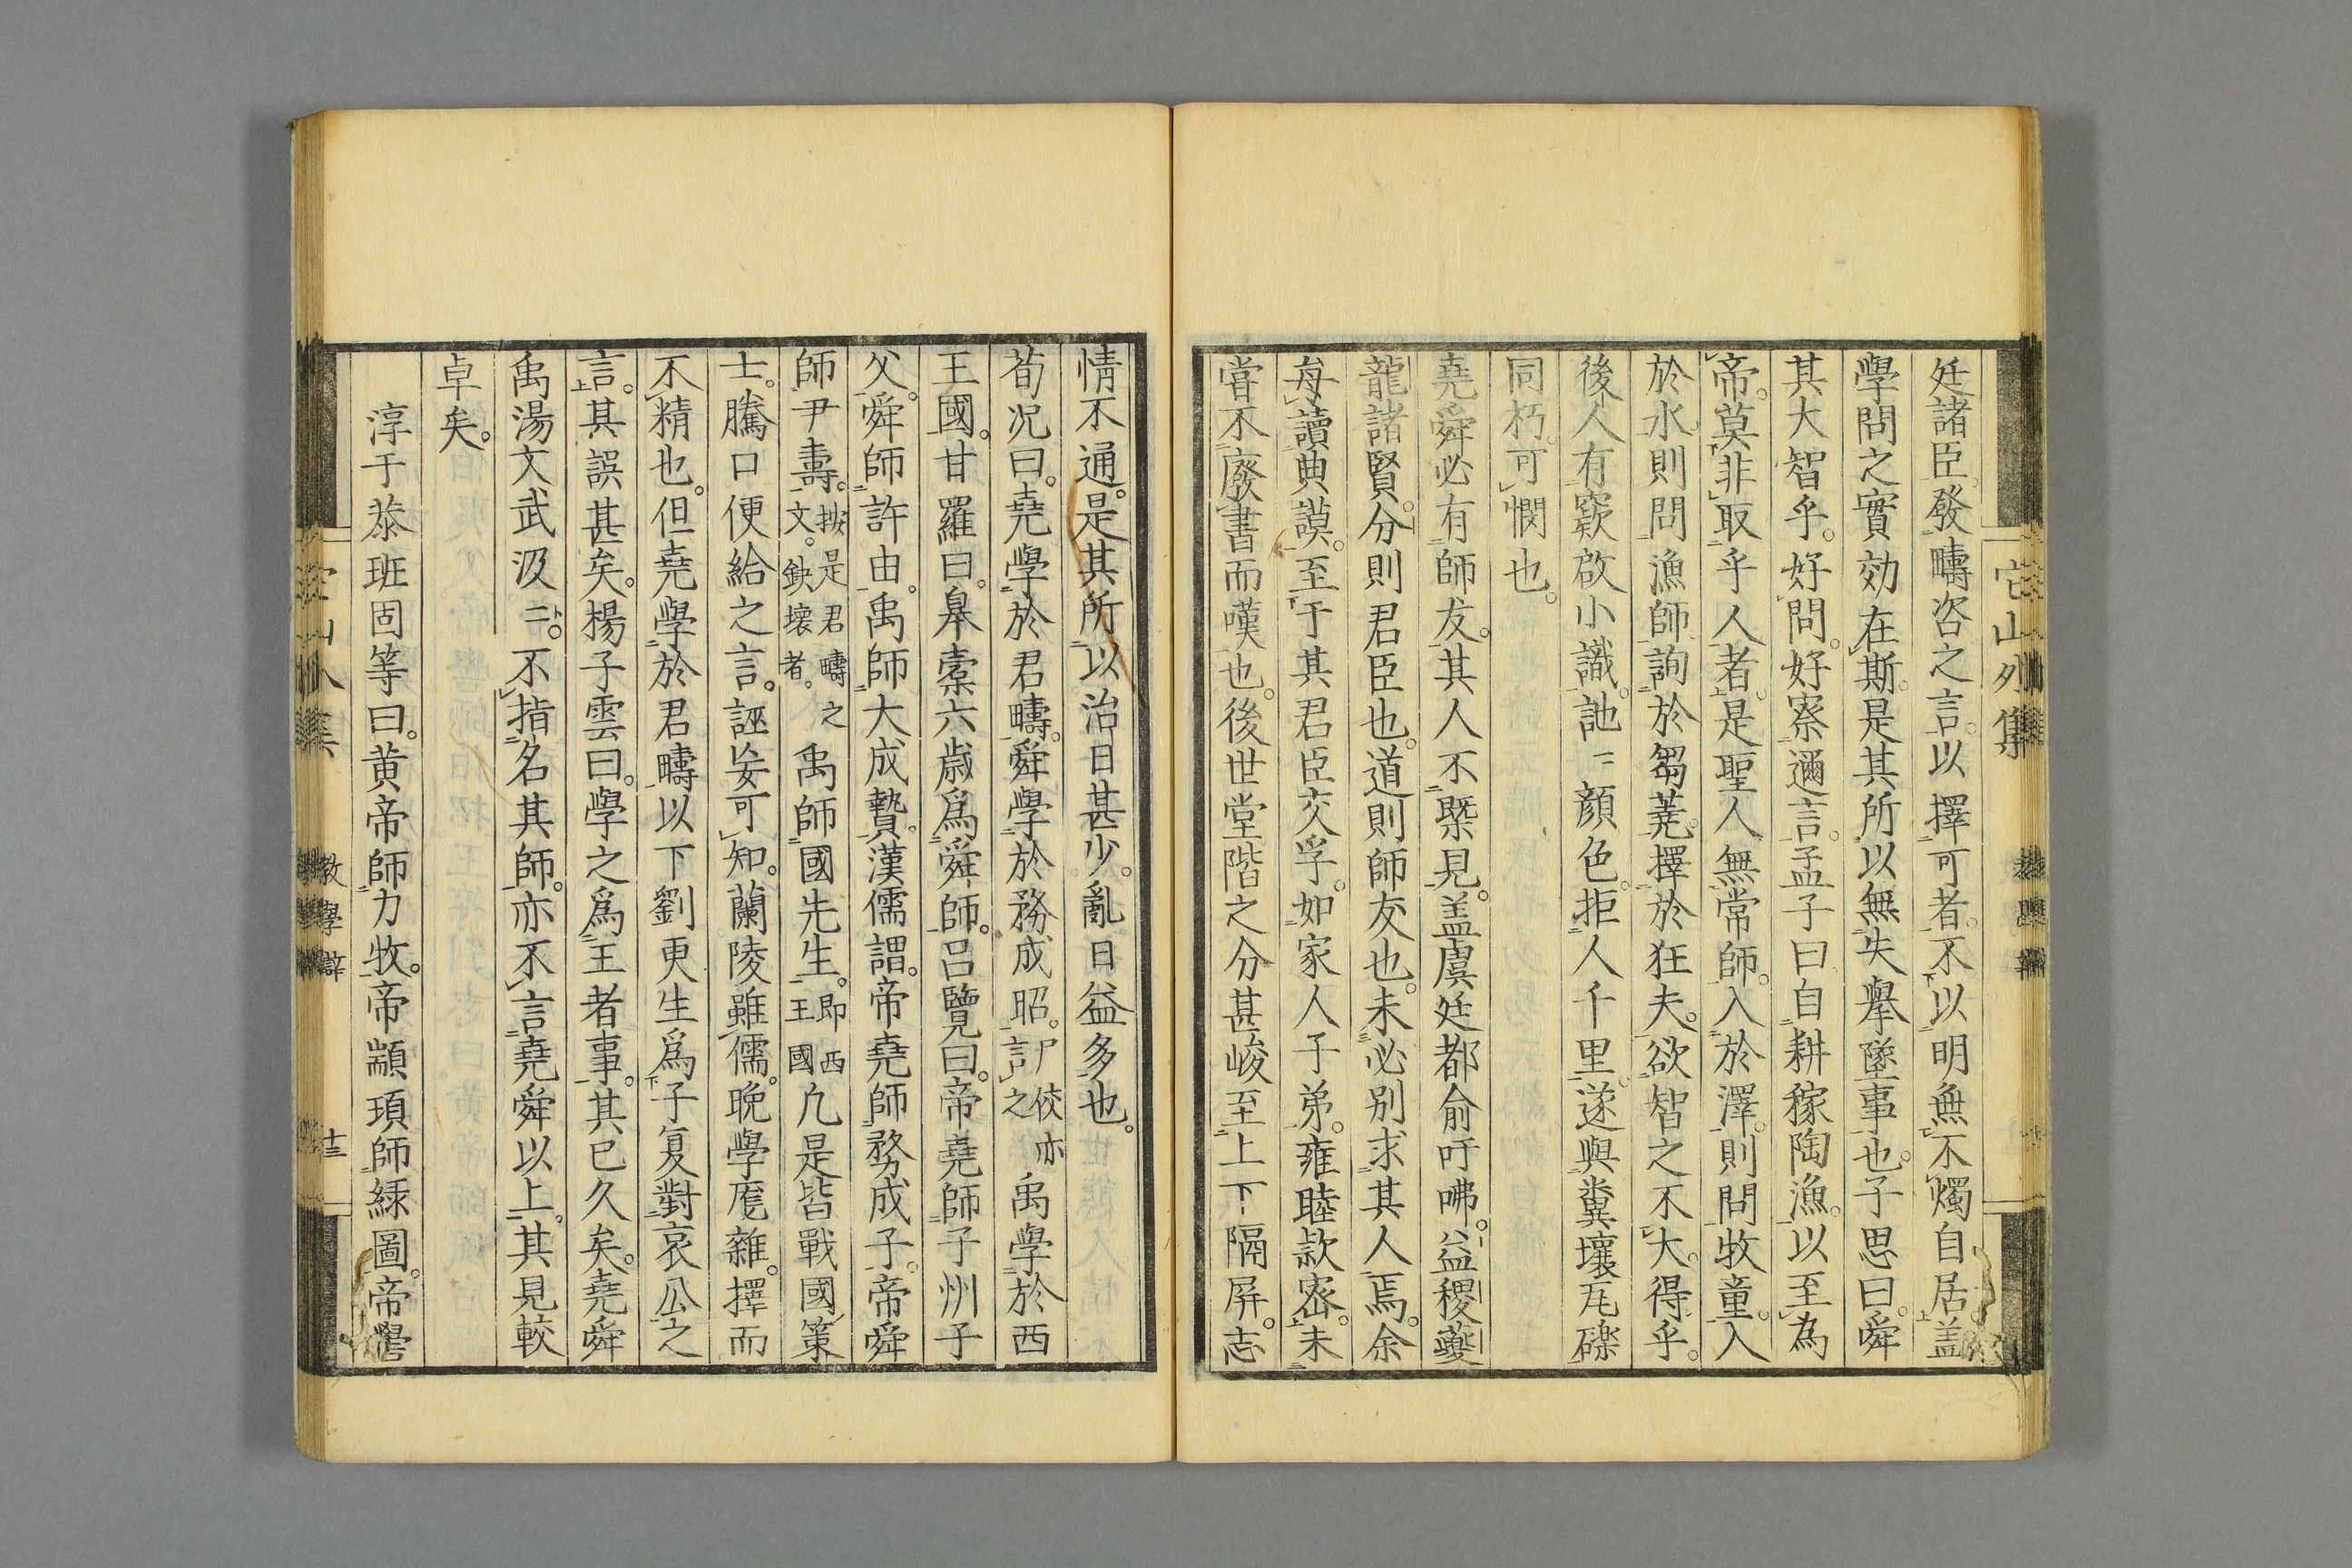 廷諸臣。發疇咨之言。以擇可者。不以明無不燭自居。盖
學問之實効在斯。是其所以無失擧墜事也。子思曰。舜
其大智乎。好問。好察邇言。孟子曰自耕稼陶漁。以至為
帝。莫非取乎人者。是聖人無常師。入於澤。則問牧童。入
於水則問漁師。詢於芻蕘。擇於狂夫。欲智之不大。得乎。
後人有窾啟小識。訑〻顏色。拒人千里。遂與糞壤瓦礫
同朽。可憫也。
堯舜必有師友。其人不槩見。盖虞廷都俞吁咈。益稷夔
龍諸賢。分則君臣也。道則師友也。未必別求其人焉。余
每讀典謨。至于其君臣交孚。如家人子弟。雍睦款密。未
甞不廢書而嘆也。後世堂階之分甚峻至上下隔屏。志
情不通。是其所以治日甚少。亂日益多也。
荀况曰。堯學於君疇。舜學於務成昭。尸佼亦言之禹學於西
王國。甘羅曰。皋橐六歲爲舜師。呂覽曰。帝堯師子州子
父。舜師許由。禹師大成贄。漢儒謂。帝堯師務成子。帝舜
師尹壽。按是君疇之文。鈌壞者。禹師國先生。即西王國凢是皆戰國策
士。騰口便給之言。誣妄可知。蘭陵雖儒。晩學厖雜。擇而
不精也。但堯學於君疇以下劉更生爲子夏對哀公之
言。其誤甚矣。楊子雲曰。學之爲王者事。其已久矣。堯舜
禹湯文武汲〻。不指名其師。亦不言堯舜以上。其見較
卓矣。
淳于恭班固等曰。黃帝師力牧。帝顓頊師綠圖。帝嚳
它山外集
教學辭
十三